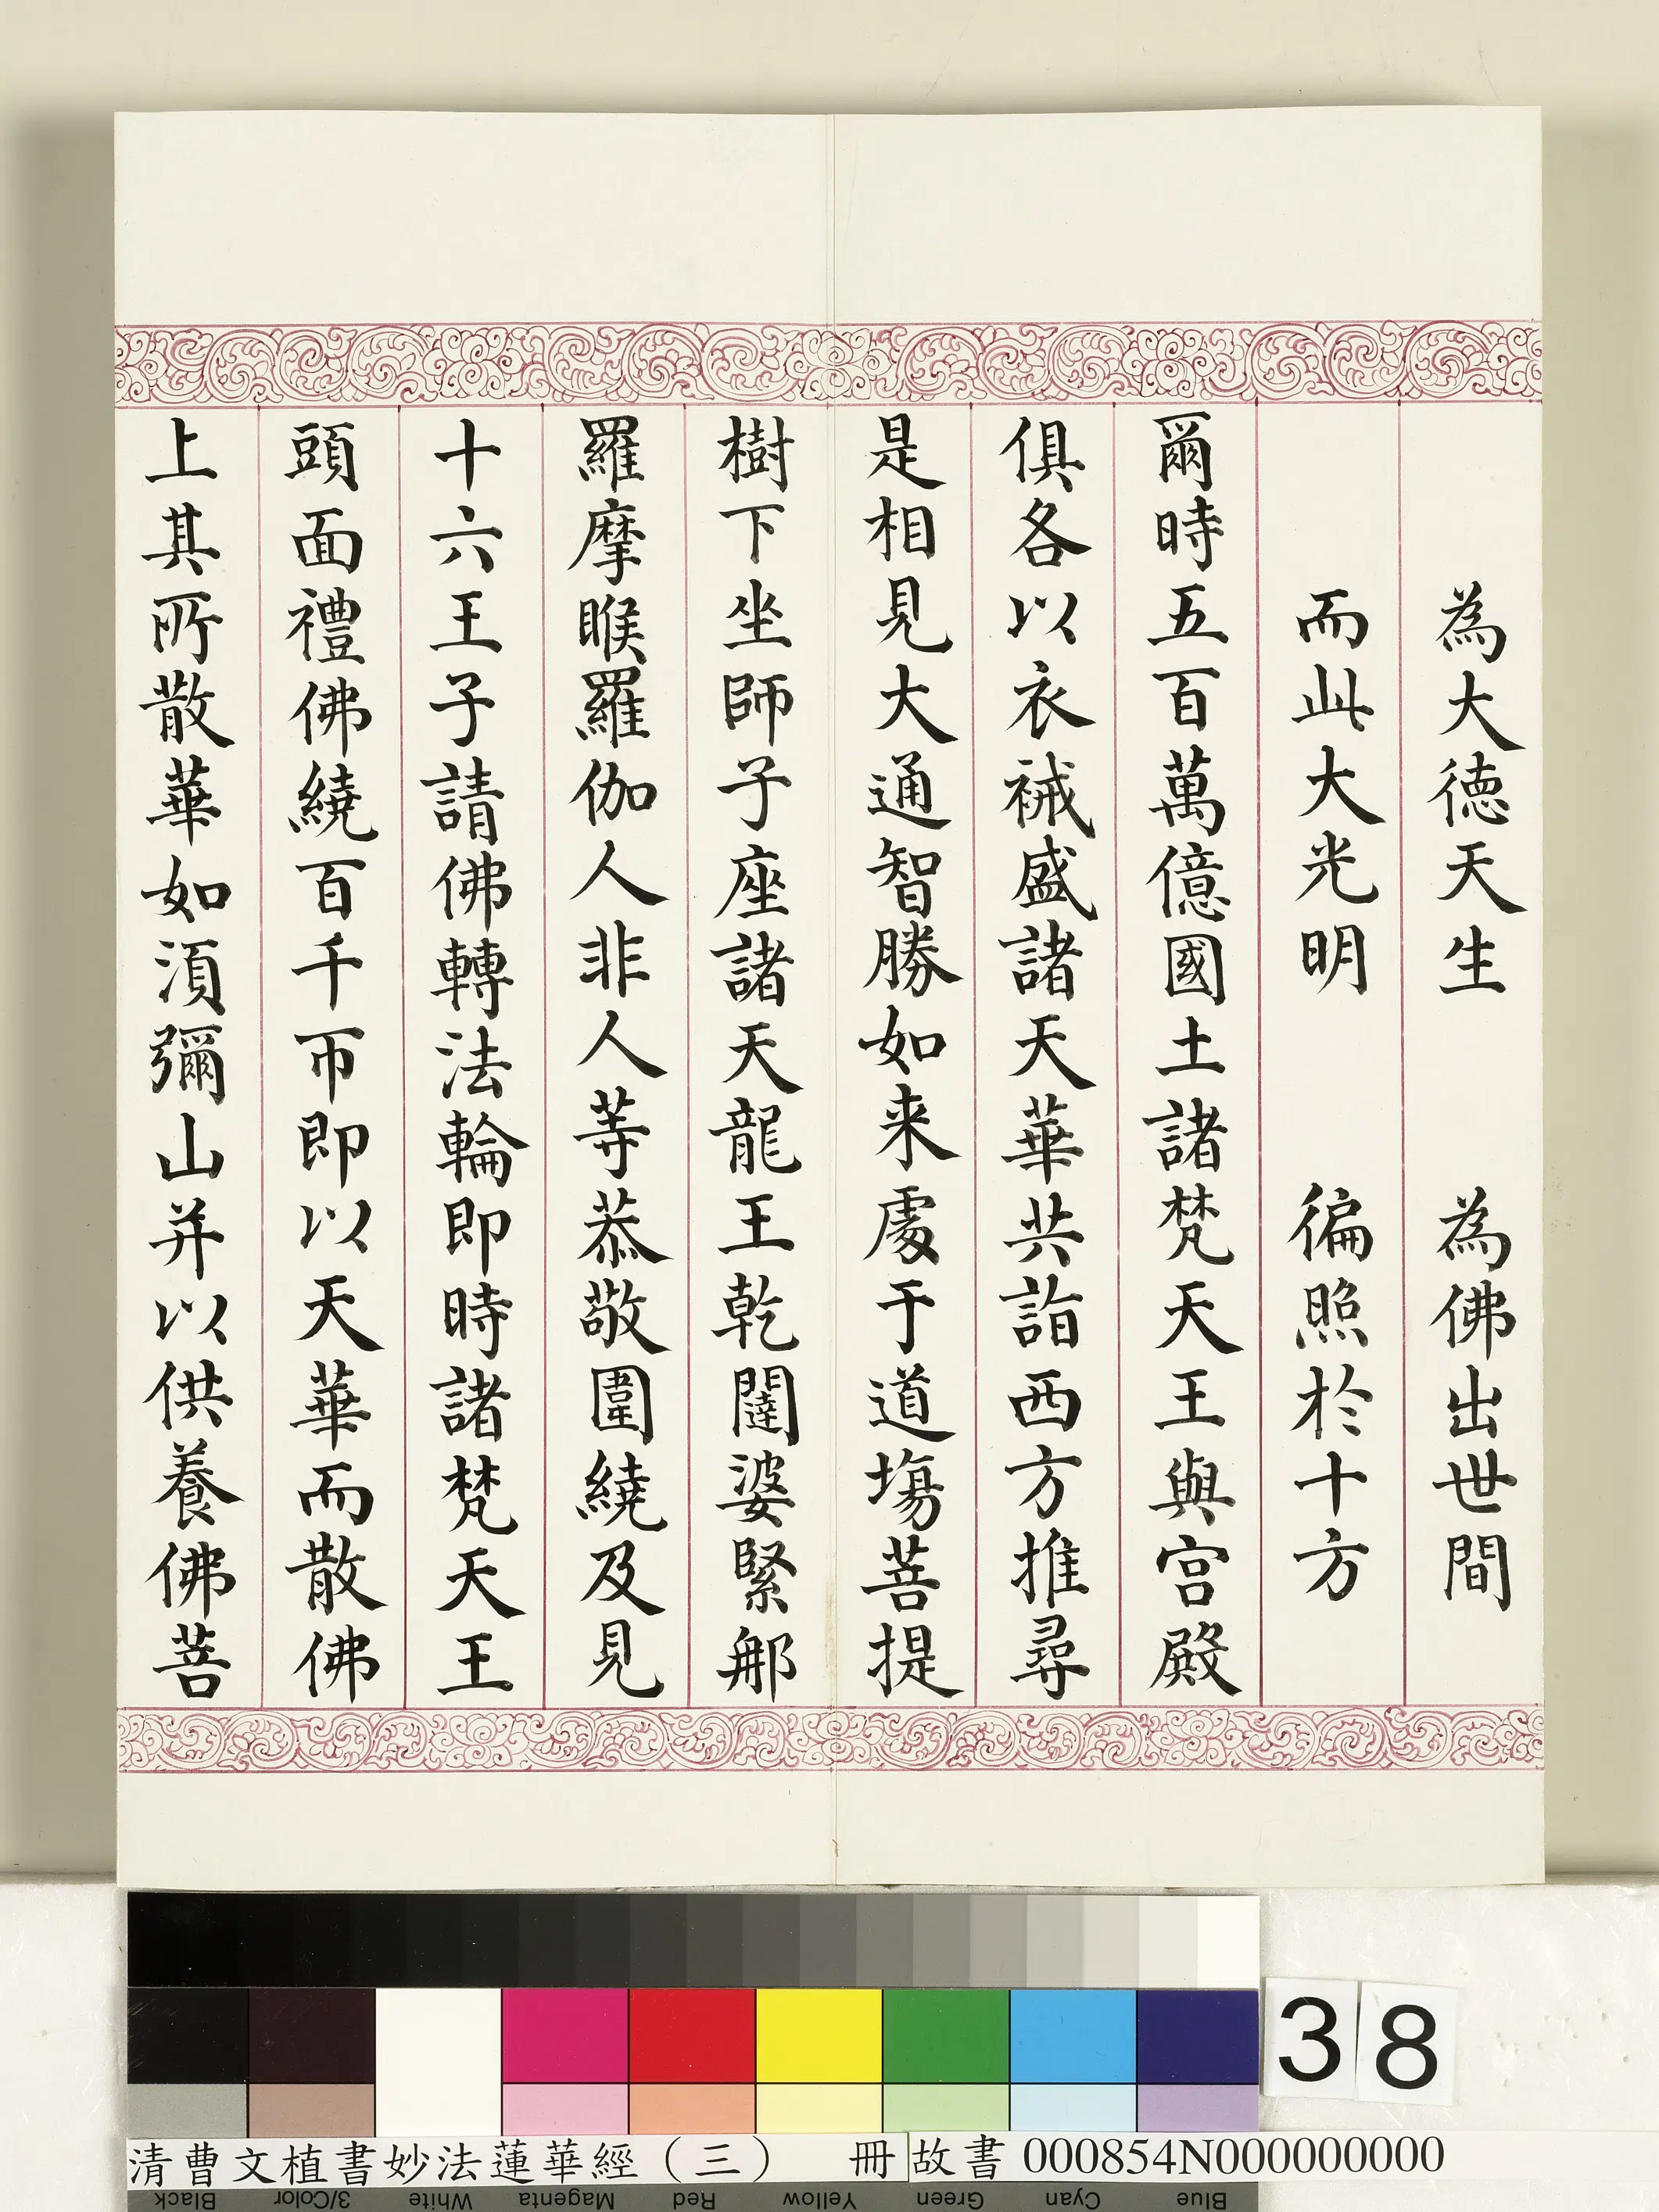 為大德天生　為佛出世間
而此大光明　徧照於十方
爾時五百萬億國土諸梵天王與宮殿
俱各以衣祴盛諸天華共詣西方推尋
是相見大通智勝如来處于道場菩提
樹下坐師子座諸天龍王乾闥婆緊那
羅摩睺羅伽人非人等恭敬圍繞及見
十六王子請佛轉法輪即時諸梵天王
頭面禮佛繞百千帀即以天華而散佛
上其所散華如須彌山并以供養佛菩
38
清曹文植書妙法蓮華經（三）　冊 故書 000854N000000000
Black 3/Color White Magenta Red Yellow Green Cyan Blue